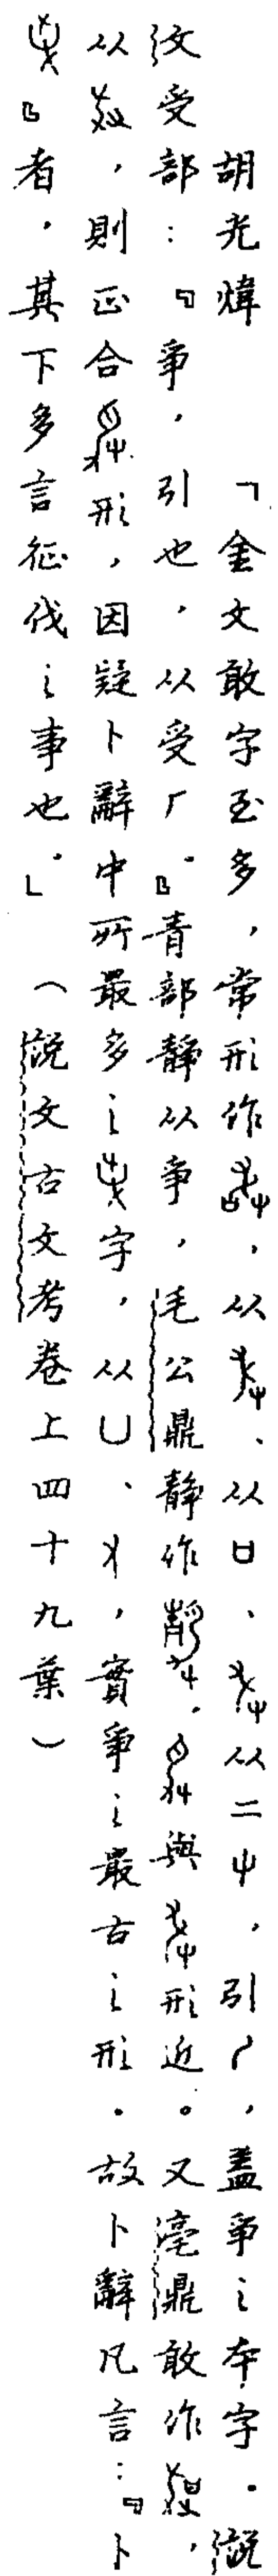 胡光煒 「金文敢字至多，常形作，从、从口、从二屮，引厂，蓋爭之本字。說
文受部：『爭，引也，从受厂。』青部靜从爭，毛公鼎靜作。與形近。又亳鼎敢作，
从，則正合形，因疑卜辭中所最多之字，从凵、，實爭之最古之形。故卜辭凡言：『卜
』者，其下多言征伐之事也。」（說文古文考卷上四十九葉）